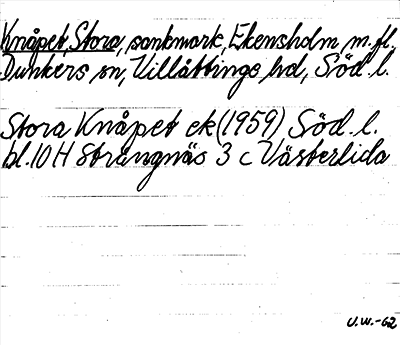 Knåpet, Stora, sankmark, Ekensholm m.fl.
Dunkers sn, Villåttinge hd, Söd. l.
Stora Knåpet ek (1959) Söd. l.
bl. 10 H Strängnäs 3 c Västerlida
U.W.-62